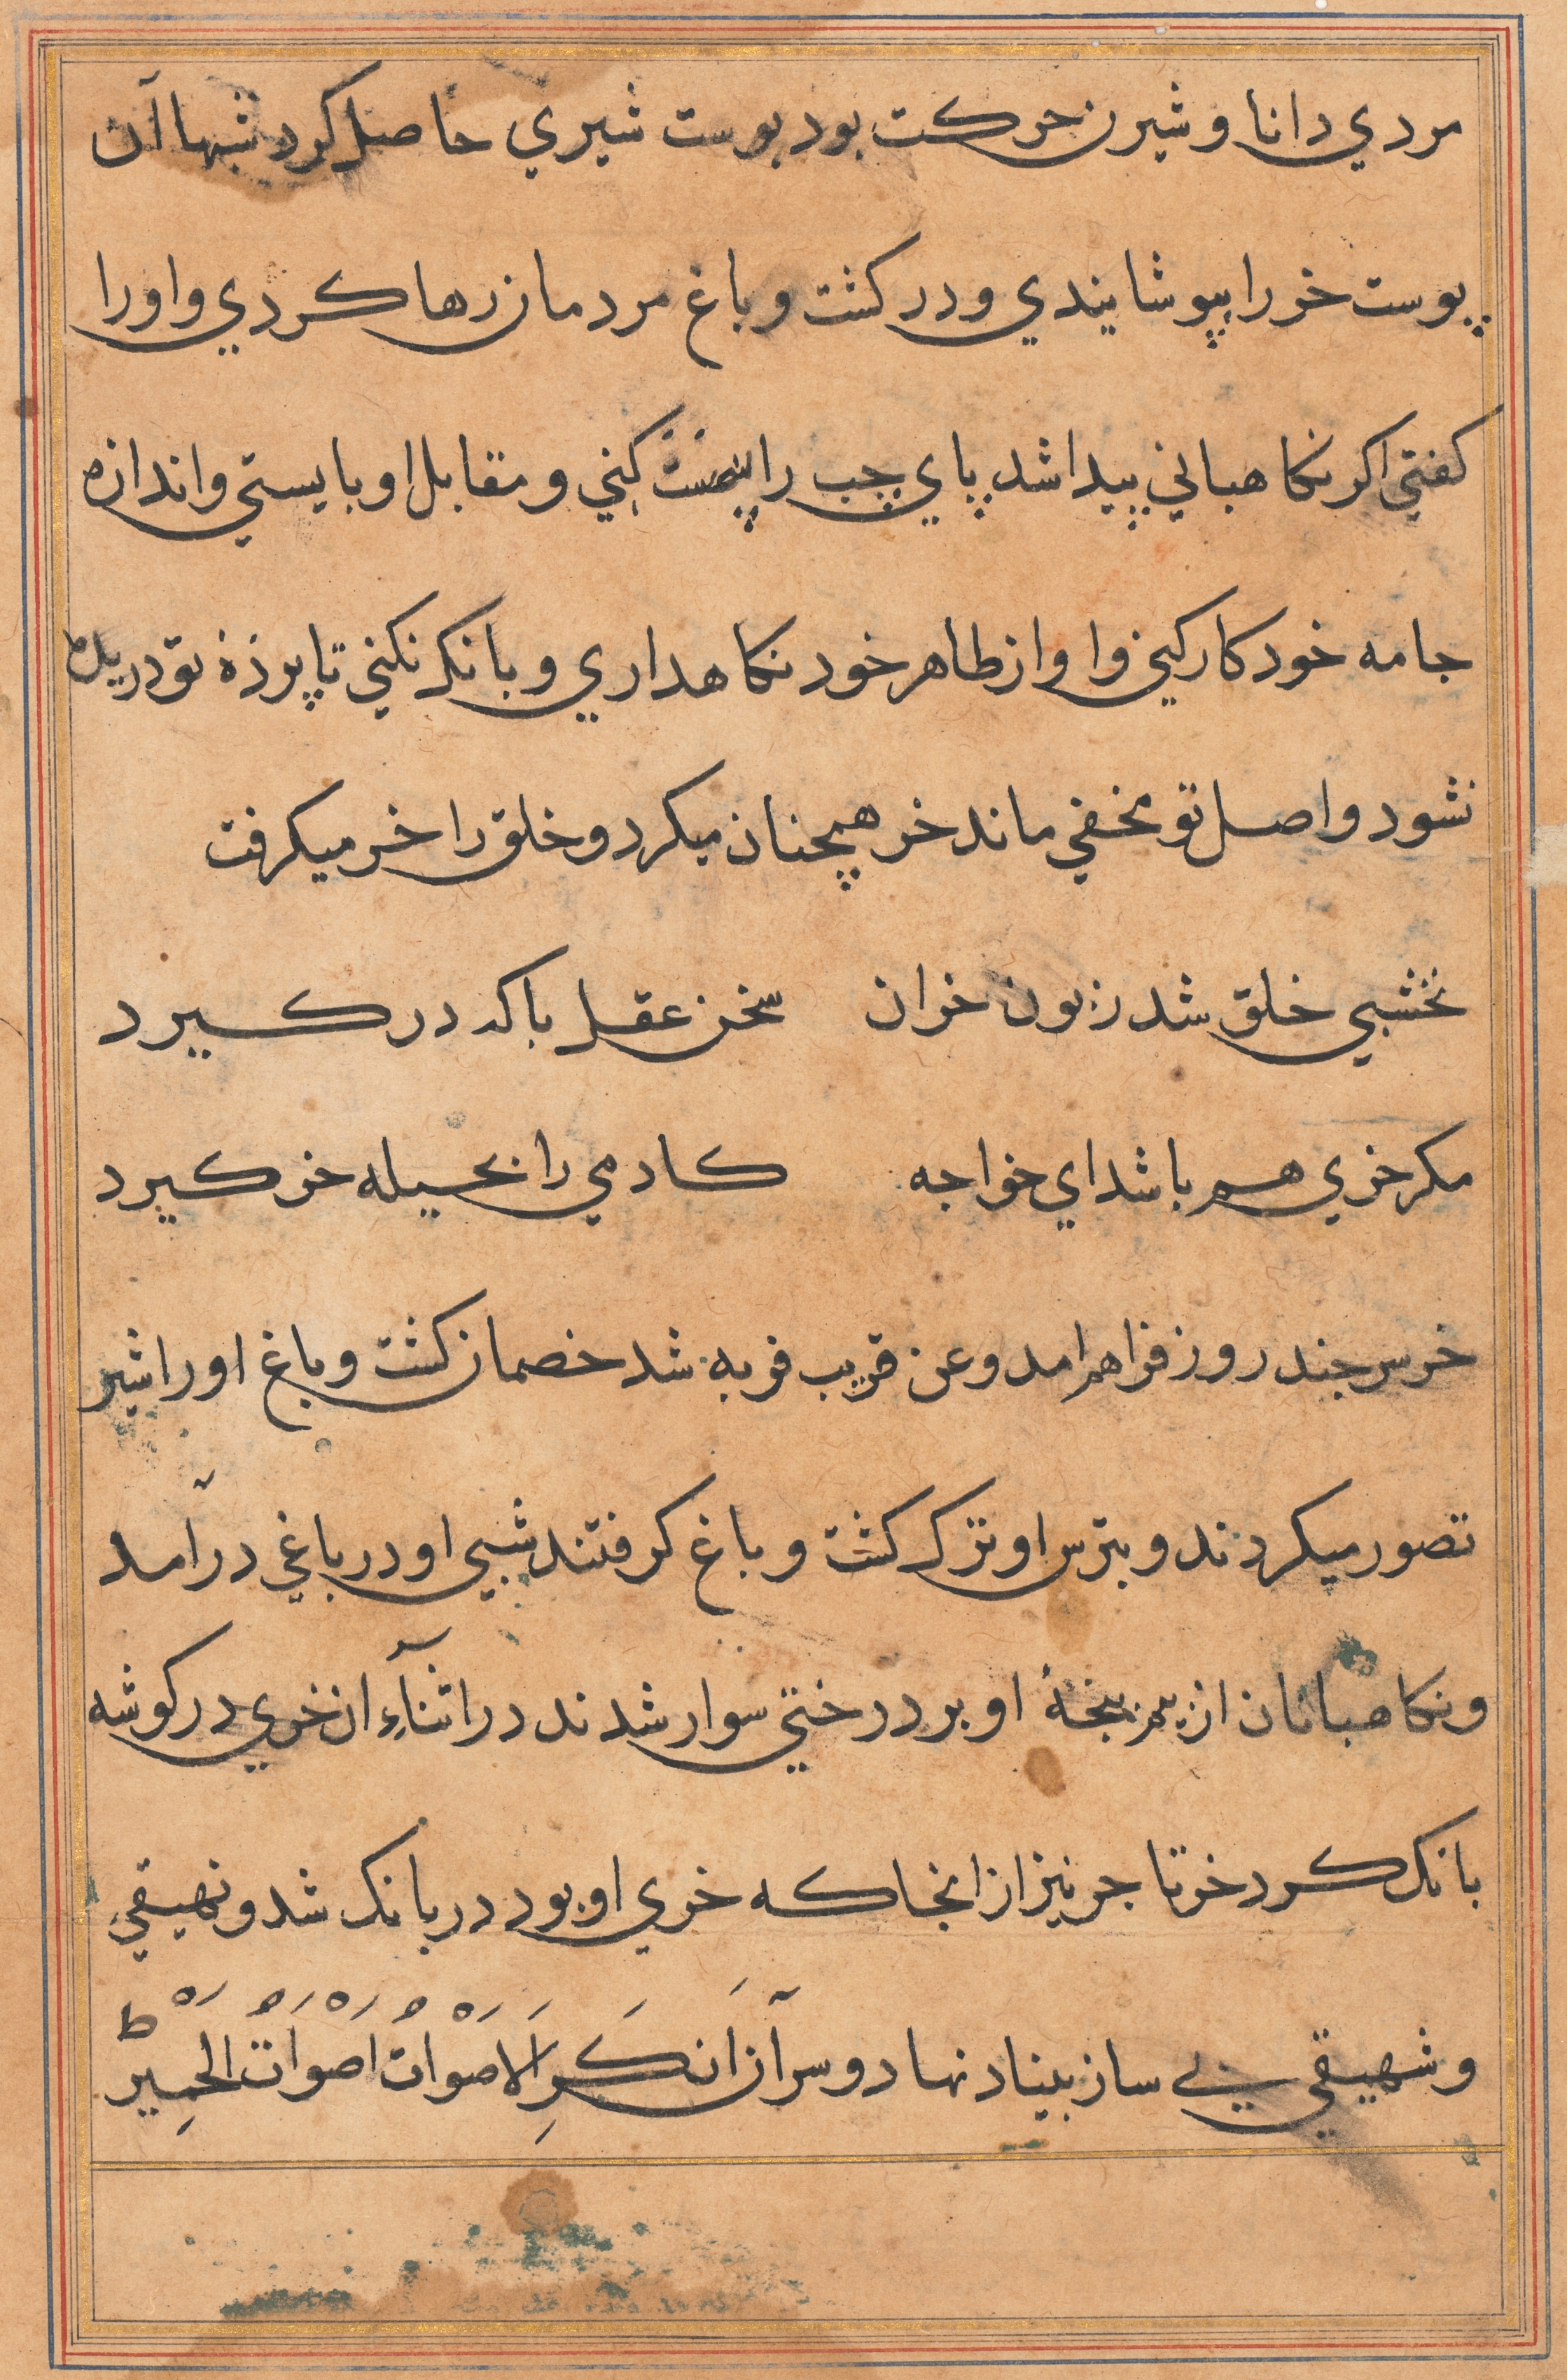 مردي دانا و شيرن حركت بود پوست شيري حاصل كرد شبها آن
پوست خر را بپوشانيدي و در كشت و باغ مردمان رها كردي و او را
كفتي اكر نكاهباني پيدا شد پاي چپ را پست كني و مقابل او بايستي و اندازه
جامه خود كار كني و آواز ظاهر خود نكاهداري و بانك نكني تا پرده تو دريده
نشود و اصل تو مخفي ماند خر همچنان ميكرد و خلق را خر ميكرفت
نخشبي خلق شد زبون خران سخن عقل باكه در كيرد
مكر خري هم باشد اي خواجه كادمي را بحيله خر كيرد
خر سر چند روز فراهم امد و عن قريب فربه شد خصمان كشت و باغ او را شير
تصور ميكردند و بترس او ترك كشت و باغ كرفتند شبي او در باغي درآمد
و نكاهبانان از بيم پنجهٔ او بر درختي سوار شدند در اثناءِ ان خري در كوشه
بانك كرد خر تاجر نيز از انجا كه خري او بود در بانك شد و نهيقي
و شهيقي بي ساز بنياد نهاد و سر آن اَنكَرَ الاَصْوَاتْ اَصْوَاتُ الحَمِيرْ